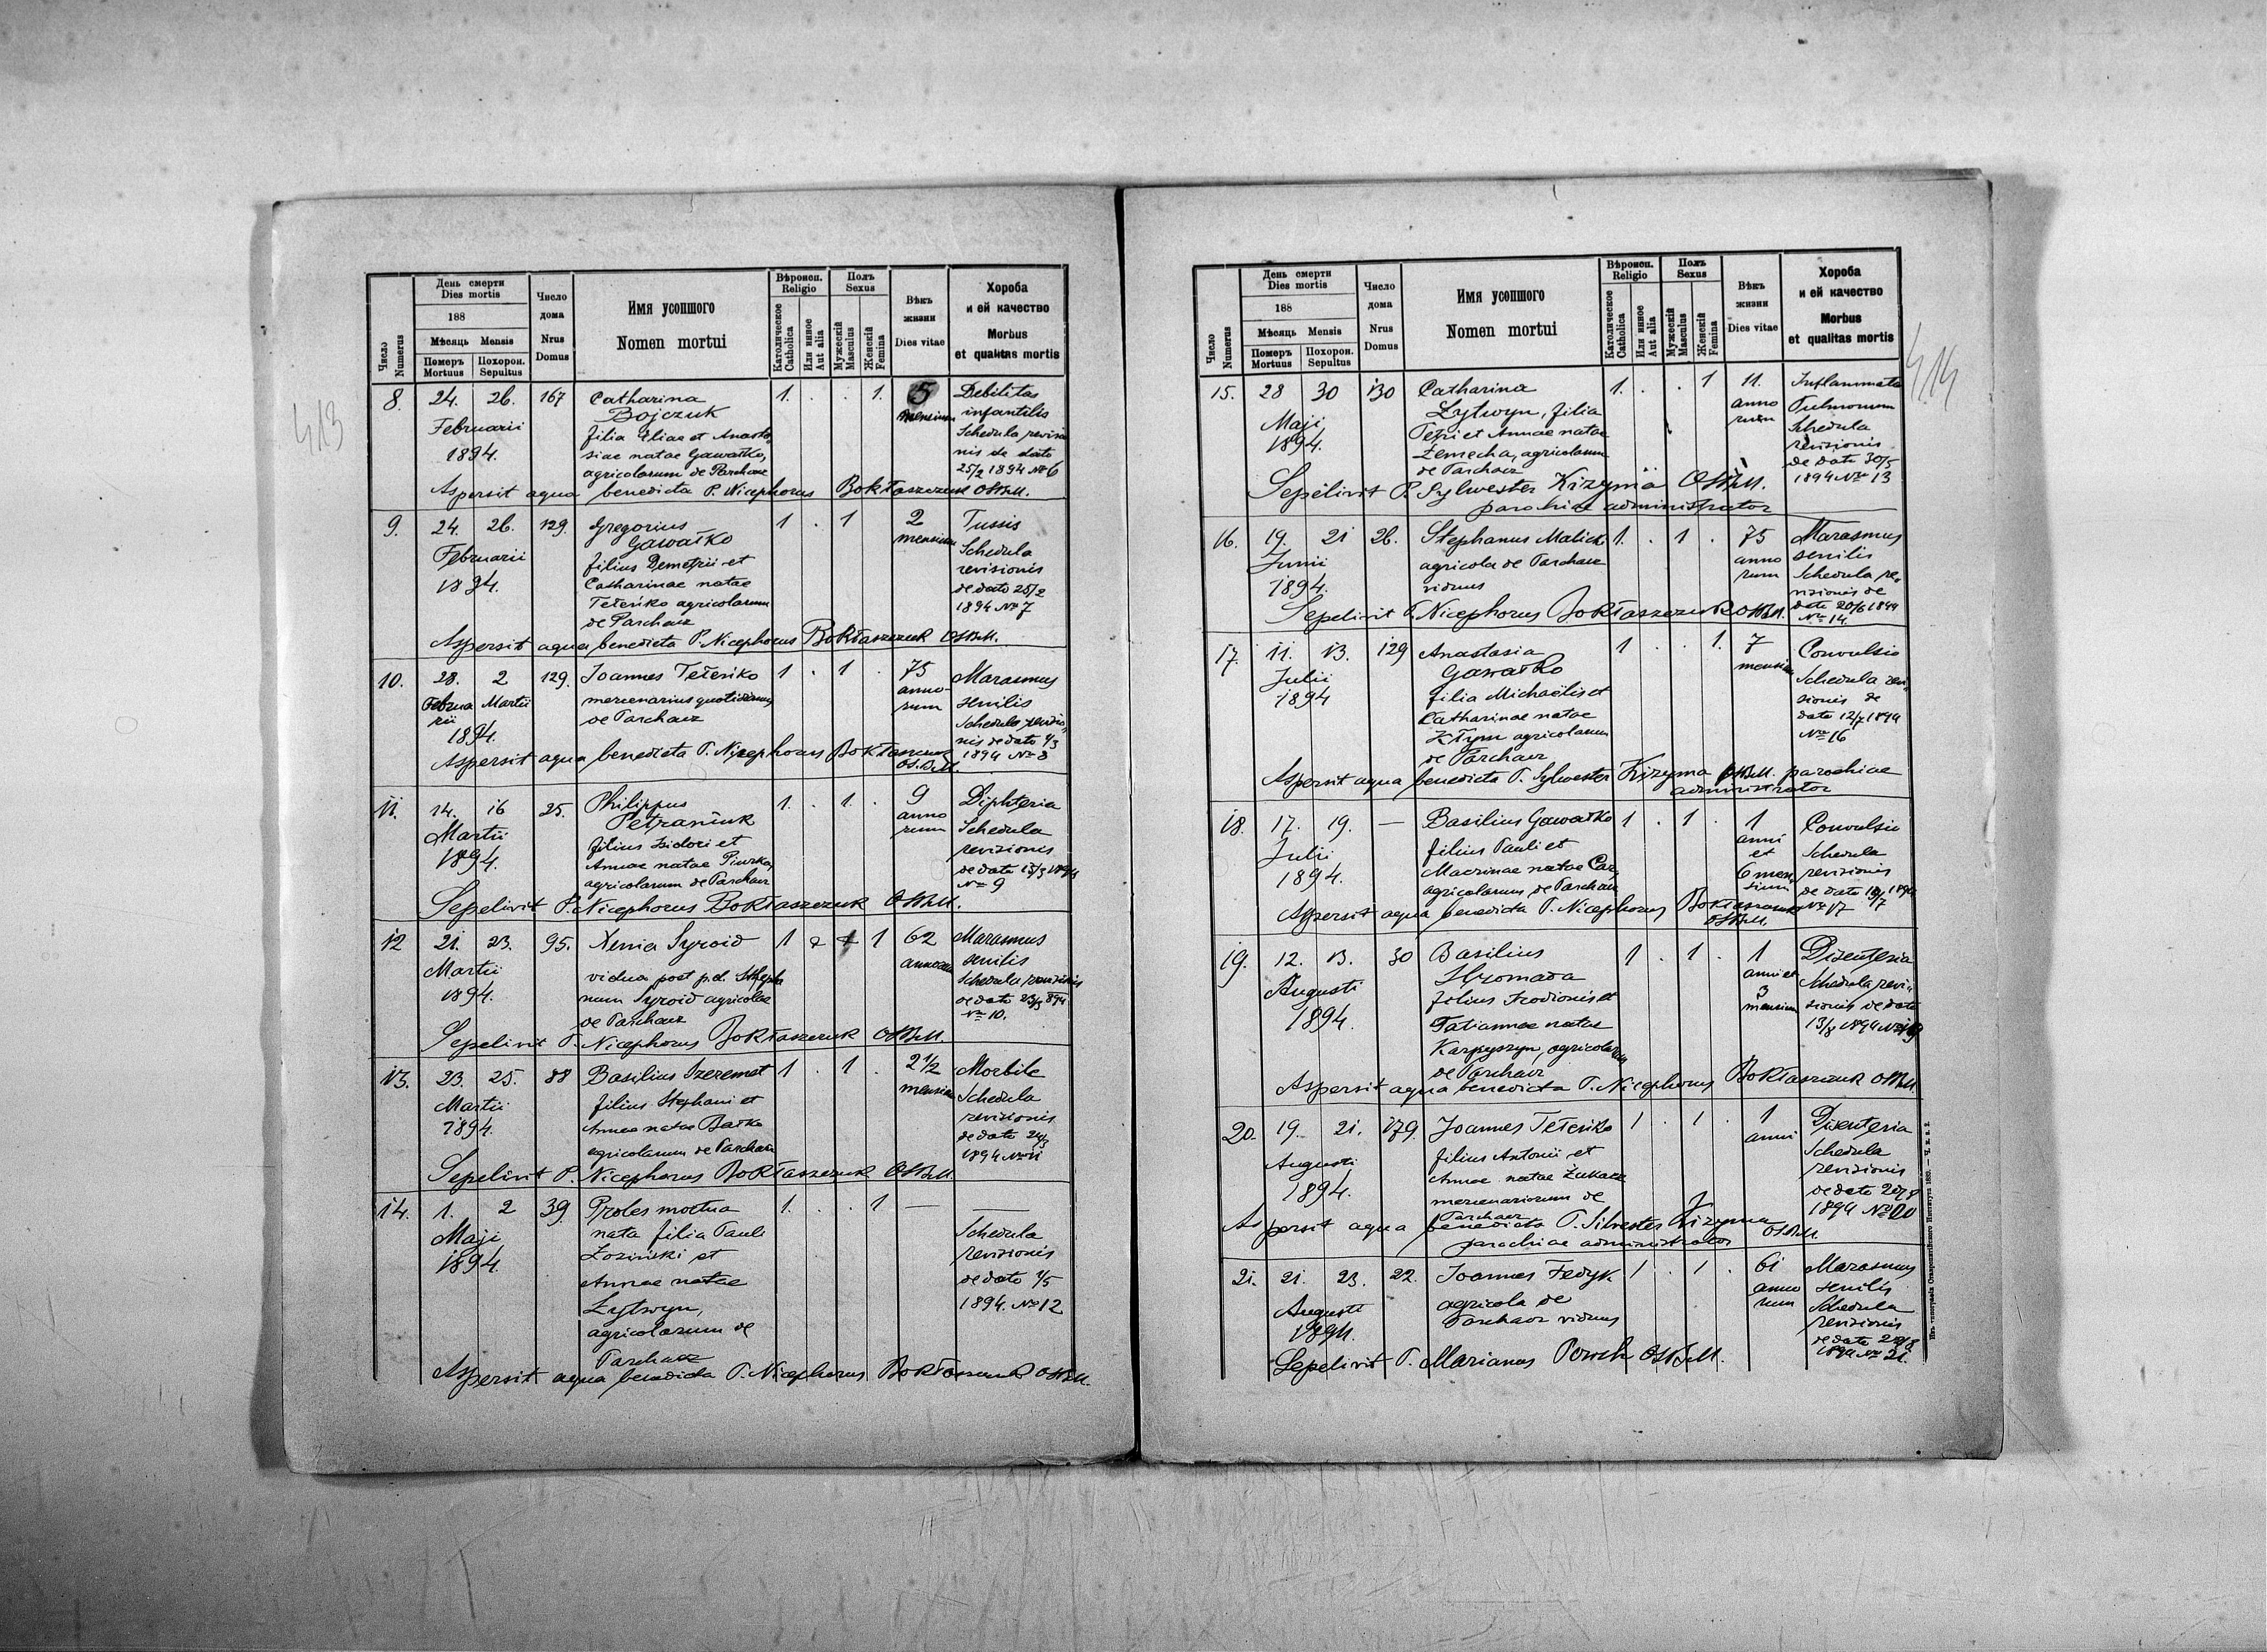 413
Число
Numerus
День смерти
Dies mortis
188
Мѣсяць Mensis
Померъ
Mortuus
Похорон.
Sepultus
Число
дома
Nrus
Domus
Имя усопшого
Nomen mortui
Вѣроисп.
Religio
Католическое
Catholica
Или инное
Aut alia
Полъ
Sexus
Мужескій
Masculus
Женскій
Femina
Вѣкъ
жизни
Dies vitae
Хороба
и ей качество
Morbus
et qualitas mortis
8. 24. 26. 167 Catharina 1. . . 1. 5 Debilitas
Bojczuk mensium infantilis
Februarii filia Eliae et Anasta- Schedula revisio
1894. siae natae Gawałko, nis de dato
agricolarum de Parchacz 25/2 1894 No 6
Aspersit aqua benedicta P. Nicephorus Bokłaszczuk OSBM.
9. 24. 26. 129. Gregorius 1 . 1 2 Tussis
Gawałko mensium
Februarii filius Demetrii et Schedula
1894. Catharinae natae revisionis
Teteńko agricolarum de dato 25/2
de Parchacz 1894 No 7
Aspersit aqua benedicta P. Nicephorus Bokłaszczuk OSBM.
10. 28. 2 129. Joannes Teteńko 1 . 1 . 75 Marasmus
Februa Martii mercenarius quotidianus anno- senilis
rii de Parchacz rum Schedula revisio
1894. nis de dato 1/3
1894 No 8
Aspersit aqua benedicta P. Nicephorus Bokłaszczuk
OSBM.
11. 14. 16 25. Philippus 1. . 1. . 9 Diphteria
Petraniuk anno Schedula
Martii filius Isidori et rum revisionis
1894. Annae natae de dato 15/3 1894
agricolarum de Parchacz No 9
Sepelivit P. Nicephorus Bokłaszczuk OSBM.
12 21. 23. 95. Xenia Syroid 1 1 62 Marasmus
Martii vidua post p.d. Stepha annorum senilis
1894. num Syroid agricolae Schedula revisionis
de Parchacz de dato 23/3 894
No 10.
Sepelivit P. Nicephorus Bokłaszczuk OSBM.
13. 23. 25. 88 Basilius Szeremet 1 . 1 . 2 1/2 Morbile
Martii filius Stephani et mensium Schedula
1894. Annae natae Bałko revisionis
agricolarum de Parchacz de dato 24/3
1894 No 11
Sepelivit P. Nicephorus Bokłaszczuk OSBM.
14. 1. 2 39 Proles mortua 1. . . 1 — —
Maji nata filia Pauli Schedula
1894. Łoziński et revisionis
Annae natae de dato 1/5
Łytwyn, 1894. No 12
agricolarum de
Parchacz
Aspersit aqua benedicta P. Nicephorus Bokłaszczuk OSBM.
414
Число
Numerus
День смерти
Dies mortis
188
Мѣсяць Mensis
Померъ
Mortuus
Похорон.
Sepultus
Число
дома
Nrus
Domus
Имя усопшого
Nomen mortui
Вѣроисп.
Religio
Католическое
Catholica
Или инное
Aut alia
Полъ
Sexus
Мужескій
Masculus
Женскій
Femina
Вѣкъ
жизни
Dies vitae
Хороба
и ей качество
Morbus
et qualitas mortis
15. 28 30 130 Catharina 1. . . 1 11. Inflammatio
Łytwyn, filia anno Pulmonum
Maji Petri et Annae natae rum Schedula
1894. Zemecha, agricolarum revisionis
de Parchacz de dato 30/5
1894 No 13
Sepelivit P. Sylwester Kizyma OSBM.
parochiae administrator
16. 19. 21 26. Stephanus Malich 1. . 1 . 75 Marasmus
Junii agricola de Parchacz anno senilis
1894. viduus rum Schedula re-
visionis de
dato 20/6 1894
No 14.
Sepelivit P. Nicephorus Bokłaszczuk OSBM.
17. 11. 13. 129 Anastasia 1 . . 1. 7 Convulsio
Gawałko mensium
Julii filia Michaëlis et Schedula revi-
1894 Catharinae natae sionis de
Kłym agricolarum dato 12/7 1894
de Parchacz No 16
Aspersit aqua benedicta P. Sylwester Kizyma OSBM. parochiae
administrator
18. 17. 19. — Basilius Gawałko 1 . 1 . 1 Convulsio
Julii filius Pauli et anni Schedula
1894. Macrinae natae et revisionis
agricolarum de Parchacz 6 men- de dato 1894
sium No 17
Aspersit aqua benedicta P. Nicephorus Bokłaszczuk
OSBM.
19. 12. 13. 30 Basilius 1 . 1 . 1 Disenteria
Hromada anni et
Augusti filius Irodionis et 3 Schedula revi-
1894. Tatiannae natae mensium sionis de dato
Karpyszyn, agricolarum 13/8 1894 No 19
de Parchacz
Aspersit aqua benedicta P. Nicephorus Bokłaszczuk OSBM.
20. 19. 21. 179. Joannes Teteńko 1 . 1 . 1 Disenteria
Augusti filius Antonii et anni Schedula
1894. Annae natae Żukacz revisionis
mercenariorum de de dato 20/8
Parchacz 1894 No 20
Aspersit aqua benedicta P. Silvester Kizyma
parochiae administrator OSBM.
21. 21. 23. 22. Joannes Fedyk 1 . 1 . 61 Marasmus
Augusti agricola de anno senilis
1894. Parchacz viduus rum Schedula
revisionis
de dato
1894 No 21.
Sepelivit P. Marianus OSBM.
Изъ типографіи Ставропигійского Института 1889.